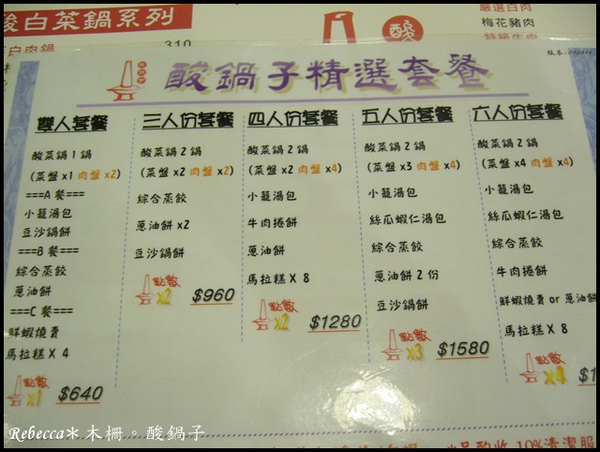 酸白菜鍋系列
白肉鍋 310
嚴選白肉
梅花豬肉
特級牛肉
酸
酸鍋子精選套餐
雙人套餐
酸菜鍋1鍋
(菜盤 x1 肉盤 x2)
===A 餐===
小籠湯包
豆沙鍋餅
===B 餐===
綜合蒸餃
蔥油餅
===C 餐===
鮮蝦燒賣
馬拉糕X 4
點數 x1 $640
三人份套餐
酸菜鍋2鍋
(菜盤 x2 肉盤 x2)
綜合蒸餃
蔥油餅 x2
豆沙鍋餅
點數 x2 $960
四人份套餐
酸菜鍋2鍋
(菜盤 x2 肉盤 x4)
小籠湯包
牛肉捲餅
蔥油餅
馬拉糕X 8
點數 x2 $1280
五人份套餐
酸菜鍋2鍋
(菜盤 x3 肉盤 x4)
小籠湯包
絲瓜蝦仁湯包
綜合蒸餃
蔥油餅 2 份
豆沙鍋餅
點數 x3 $1580
六人份套餐
酸菜鍋2鍋
(菜盤 x4 肉盤 x4)
小籠湯包
絲瓜蝦仁湯包
綜合蒸餃
牛肉捲餅
鮮蝦燒賣 or 蔥油餅
馬拉糕X 8
點數 x4 $1
酌收 10%清潔服
Rebecca＊木柵。酸鍋子